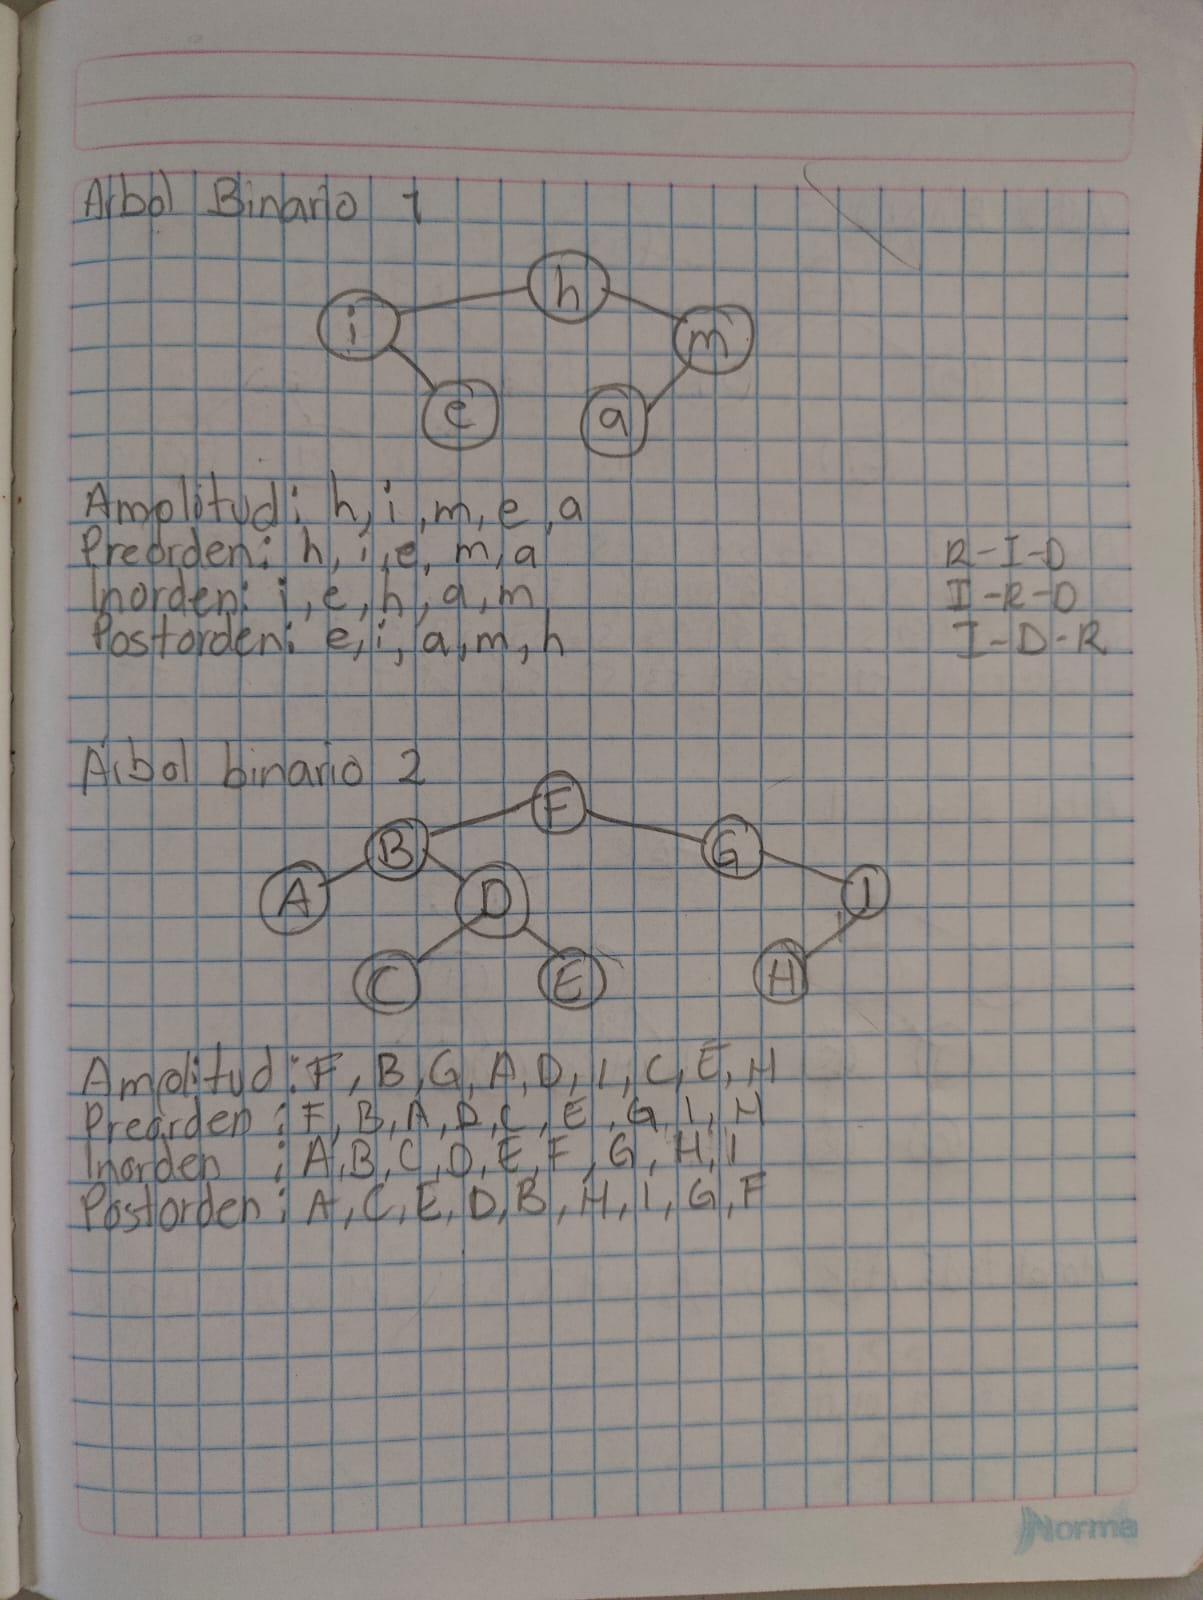 Arbol Binario 1
h
i
m
e
a
Amplitud: h, i, m, e, a
Preorden: h, i, e, m, a
R-I-D
Inorden: i, e, h, a, m
I-R-D
Postorden: e, i, a, m, h
I-D-R
Arbol binario 2
F
B
G
A
D
I
C
E
H
Amplitud: F, B, G, A, D, I, C, E, H
Preorden: F, B, A, D, C, E, G, I, H
Inorden: A, B, C, D, E, F, G, H, I
Postorden: A, C, E, D, B, H, I, G, F
Norma